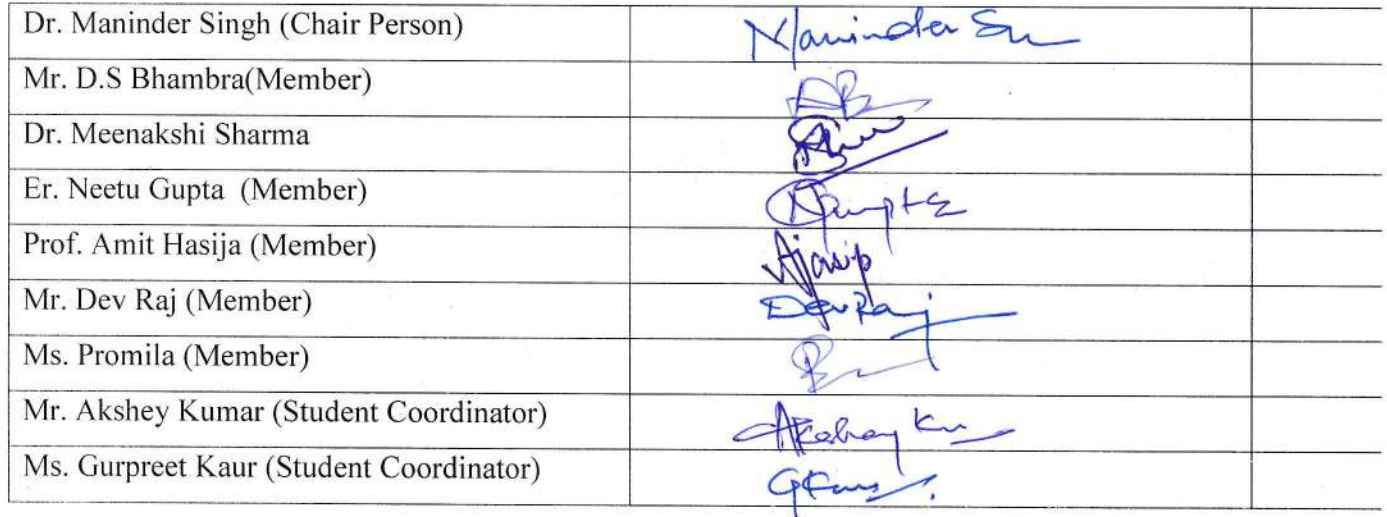 Dr. Maninder Singh (Chair Person) Maninder
Mr. D.S Bhambra(Member)
Dr. Meenakshi Sharma
Er. Neetu Gupta (Member)
Prof. Amit Hasija (Member)
Mr. Dev Raj (Member) Dev Raj
Ms. Promila (Member)
Mr. Akshey Kumar (Student Coordinator)
Ms. Gurpreet Kaur (Student Coordinator)